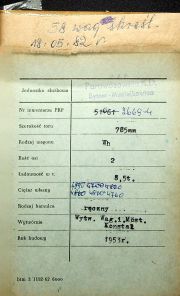 58 wag skreśl.
18.05.82 r
Jednostka służbowa
Parowozownia K.D.
Nr inwentarza PKP
3669-4
Szerokość toru
785mm
Rodzaj wagonu
Wh
Ilość osi
2
Ładowność w t.
8,5t.
Ciężar własny
Rodzaj hamulca
ręczny
Wytwórnia
Wytw. Wag. i Most.
Konstal
Rok budowy
1953r.